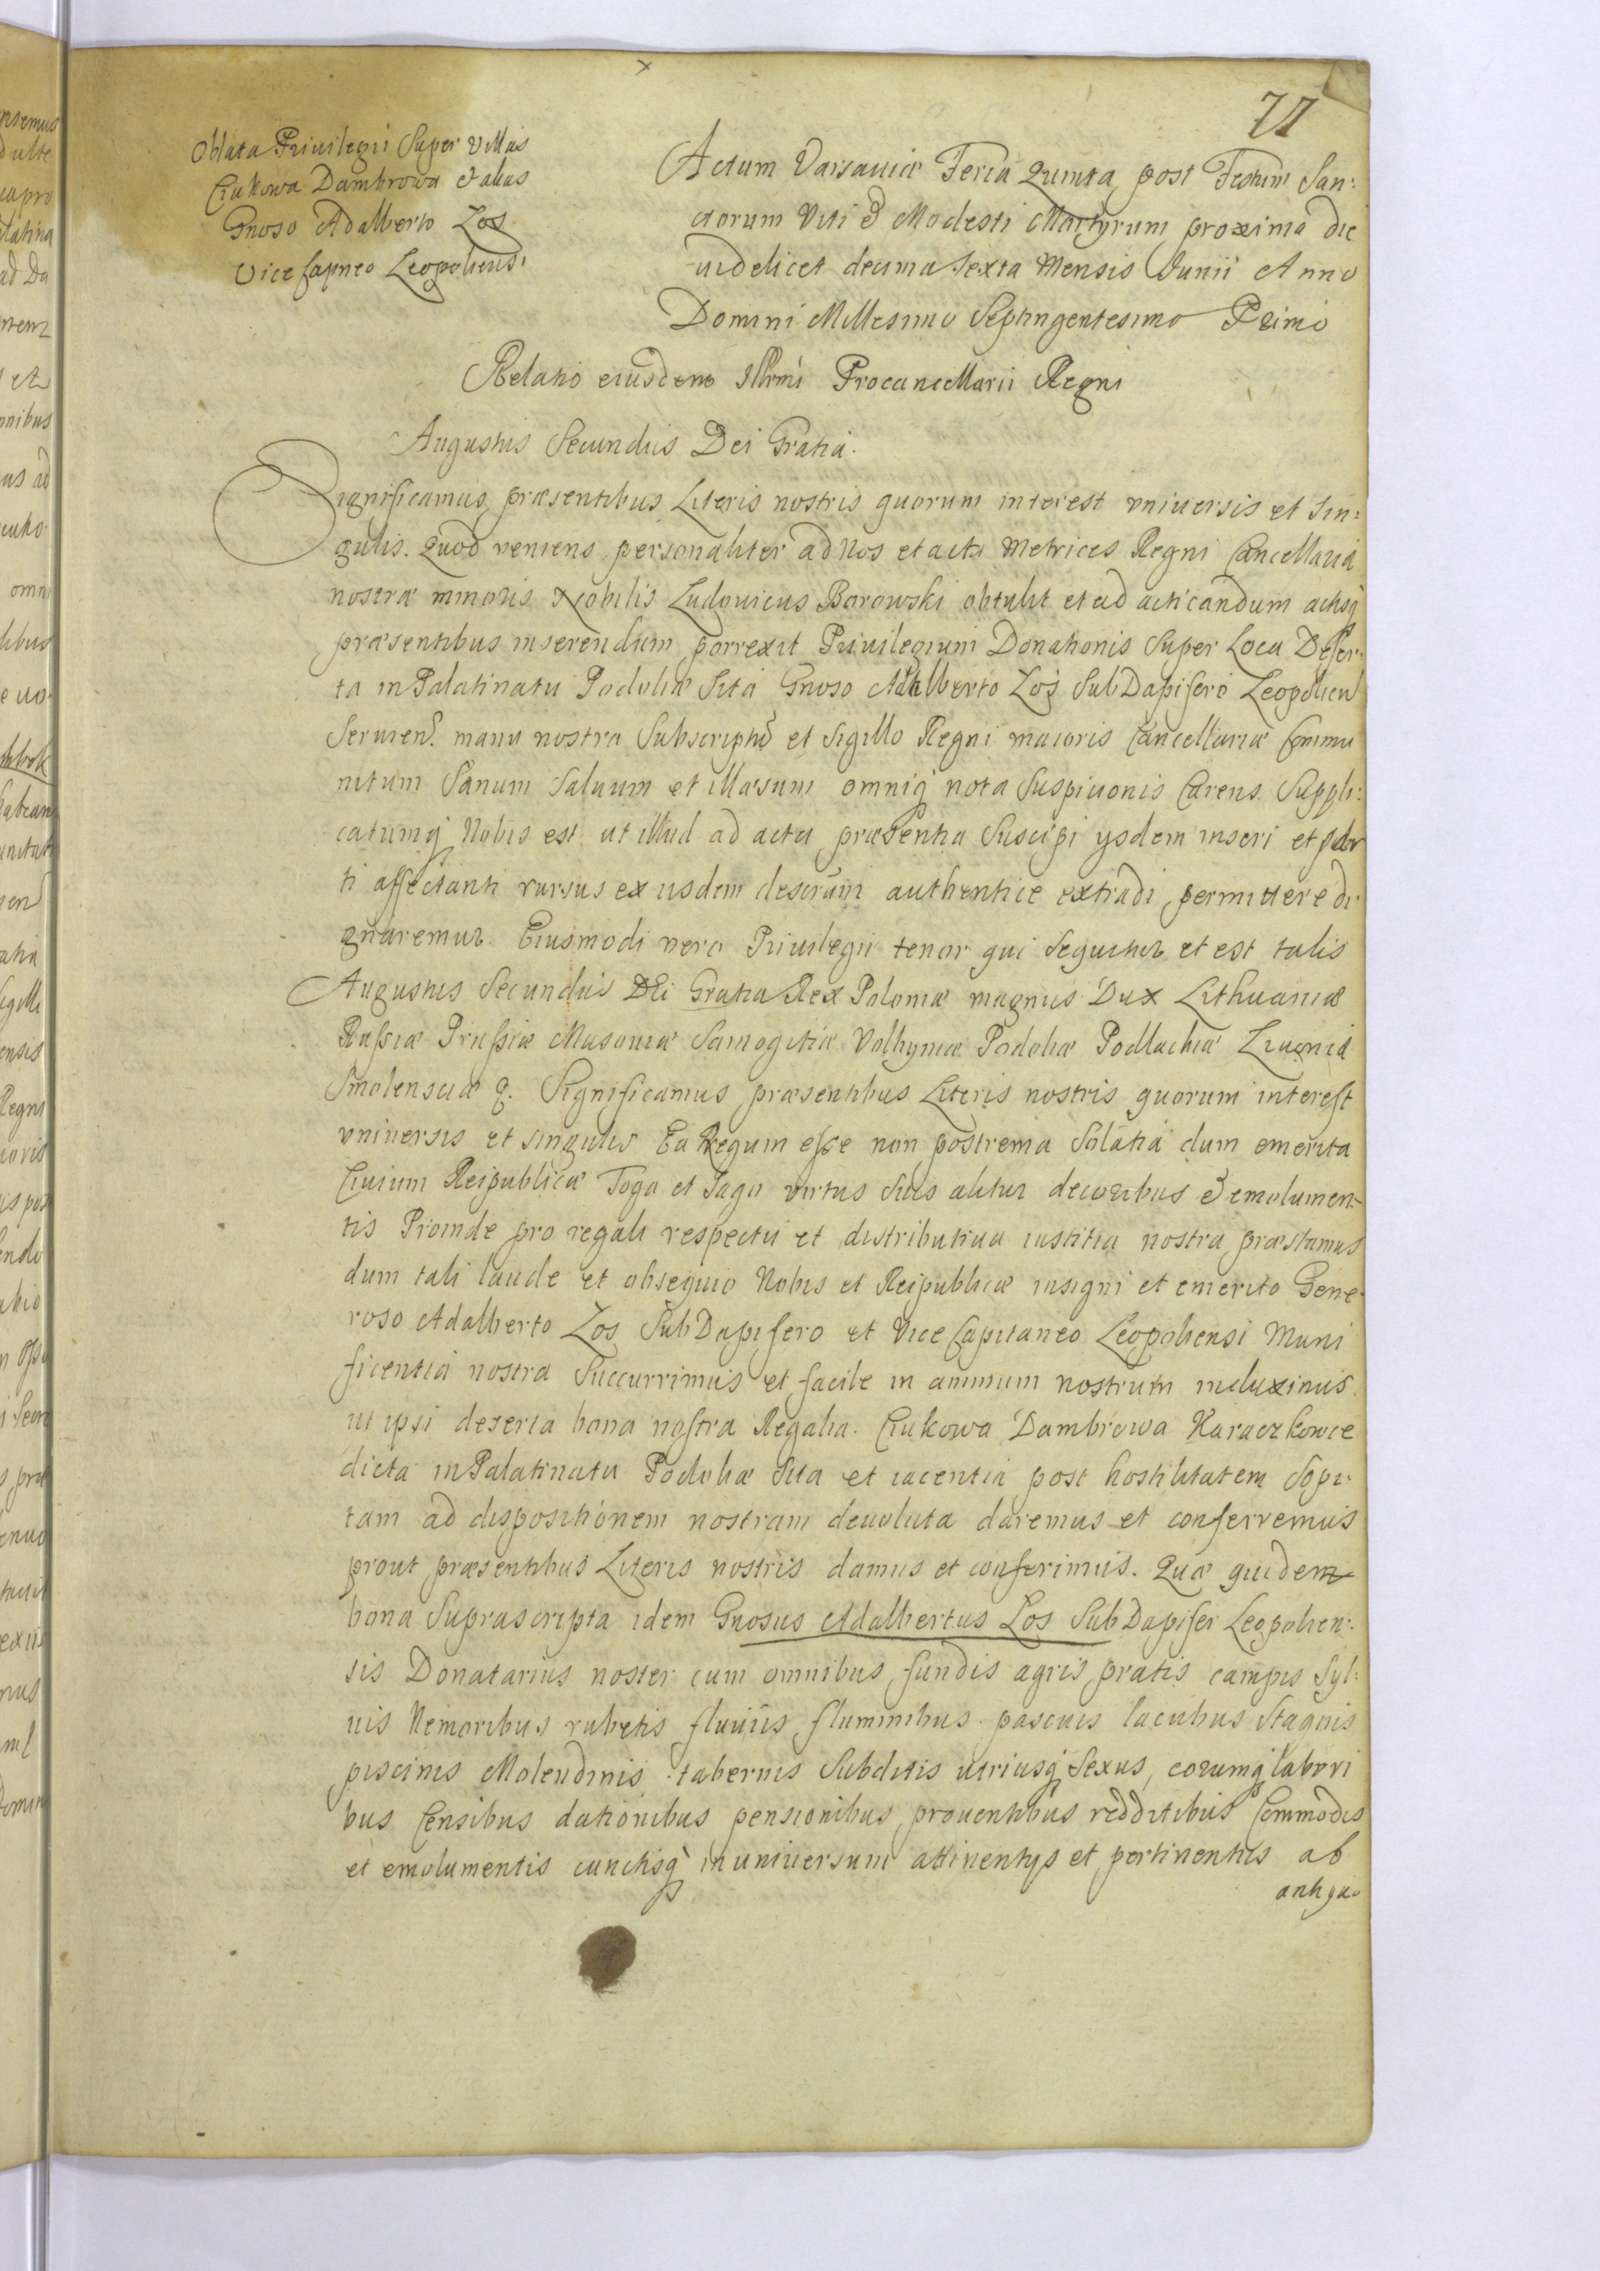 71
Oblata Priuilegii Super Villas
Ciukowa Dambrowa et alias
Gnoso Adalberto Łos
Vice Capneo Leopoliensi
Actum Varsauiæ Feria Quinta post Festum San:
ctorum Viti et Modesti Martyrum proxima die
uidelicet decima Sexta Mensis Junii Anno
Domini Millesimo Septingentesimo Primo
Relatio eiusdem Illrmi Procancellarii Regni
Augustus Secundus Dei Gratia.
Significamus præsentibus Literis nostris quorum interest vniuersis et sin:
gulis. Quod veniens personaliter ad Nos et acta Metrices Regni Cancellariæ
nostræ minoris Nobilis Ludouicus Borowski obtulit et ad acticandum actisq
præsentibus inserendum porrexit Priuilegium Donationis Super Loca Deser:
ta in Palatinatu Podoliæ Sita Gnoso Adalberto Łoś SubDapifero Leopolien
Seruien. manu nostra Subscriptũ et Sigillo Regni maioris Cancellariæ Commu
nitum Sanum Saluum et illæsum omniq nota Suspicionis Carens. Suppli:
catumq Nobis est ut illud ad acta præsentia Suscipi ysdem inseri et par
ti affectanti rursus ex iisdem descriptum authentice extradi permittere di:
gnaremur. Eiusmodi vero Priuilegii tenor qui Sequitur et est talis
Augustus Secundus DEi Gratia Rex Poloniæ magnus Dux Lithuaniæ
Russiæ Prussiæ Masouiæ Samogitiæ Volhyniæ Podoliæ Podlachiæ Liuoniæ
Smolensciæ &. Significamus præsentibus Literis nostris quorum interest
vniuersis et singulis Ea Regum esse non postrema Solatia dum emerita
Ciuium Reipublicæ Toga et Sago virtus Suis alitur decoribus et emolumen-
tis Proinde pro regali respectu et distributiua iustitia nostra præstamus
dum tali laude et obsequio Nobis et Reipublicæ insigni et emerito Gene-
roso Adalberto Łos SubDapifero et Vice Capitaneo Leopoliensi Muni
ficentia nostra Succurrimus et facile in animum nostrum induximus
ut ipsi deserta bona nostra Regalia. Ciukowa Dambrowa Karaczkowce
dicta in Palatinatu Podoliæ Sita et iacentia post hostilitatem Sopi:
tam ad dispositionem nostram deuoluta daremus et conferremus
prout præsentibus Literis nostris damus et conferimus. Quæ quidem
bona Suprascripta idem Gnosus Adalbertus Łos SubDapifer Leopolien:
sis Donatarius noster cum omnibus fundis agris pratis campis Syl:
uis Nemoribus rubetis fluuiis fluminibus pascuis lacubus Stagnis
piscinis Molendinis tabernis Subditis utriusq Sexus, eorumq labori
bus Censibus dationibus pensionibus prouentibus redditibus Commodis
et emolumentis cunctisq in uniuersum attinentys et pertinentiis ab
antiquo